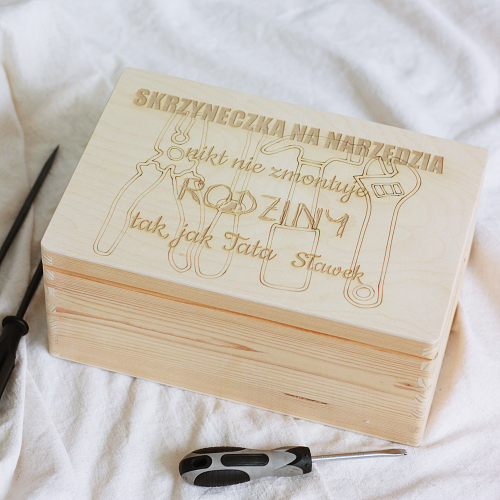 SKRZYNECZKA NA NARZĘDZIA
nikt nie zmontuje
RODZINY
tak jak Tata Sławek